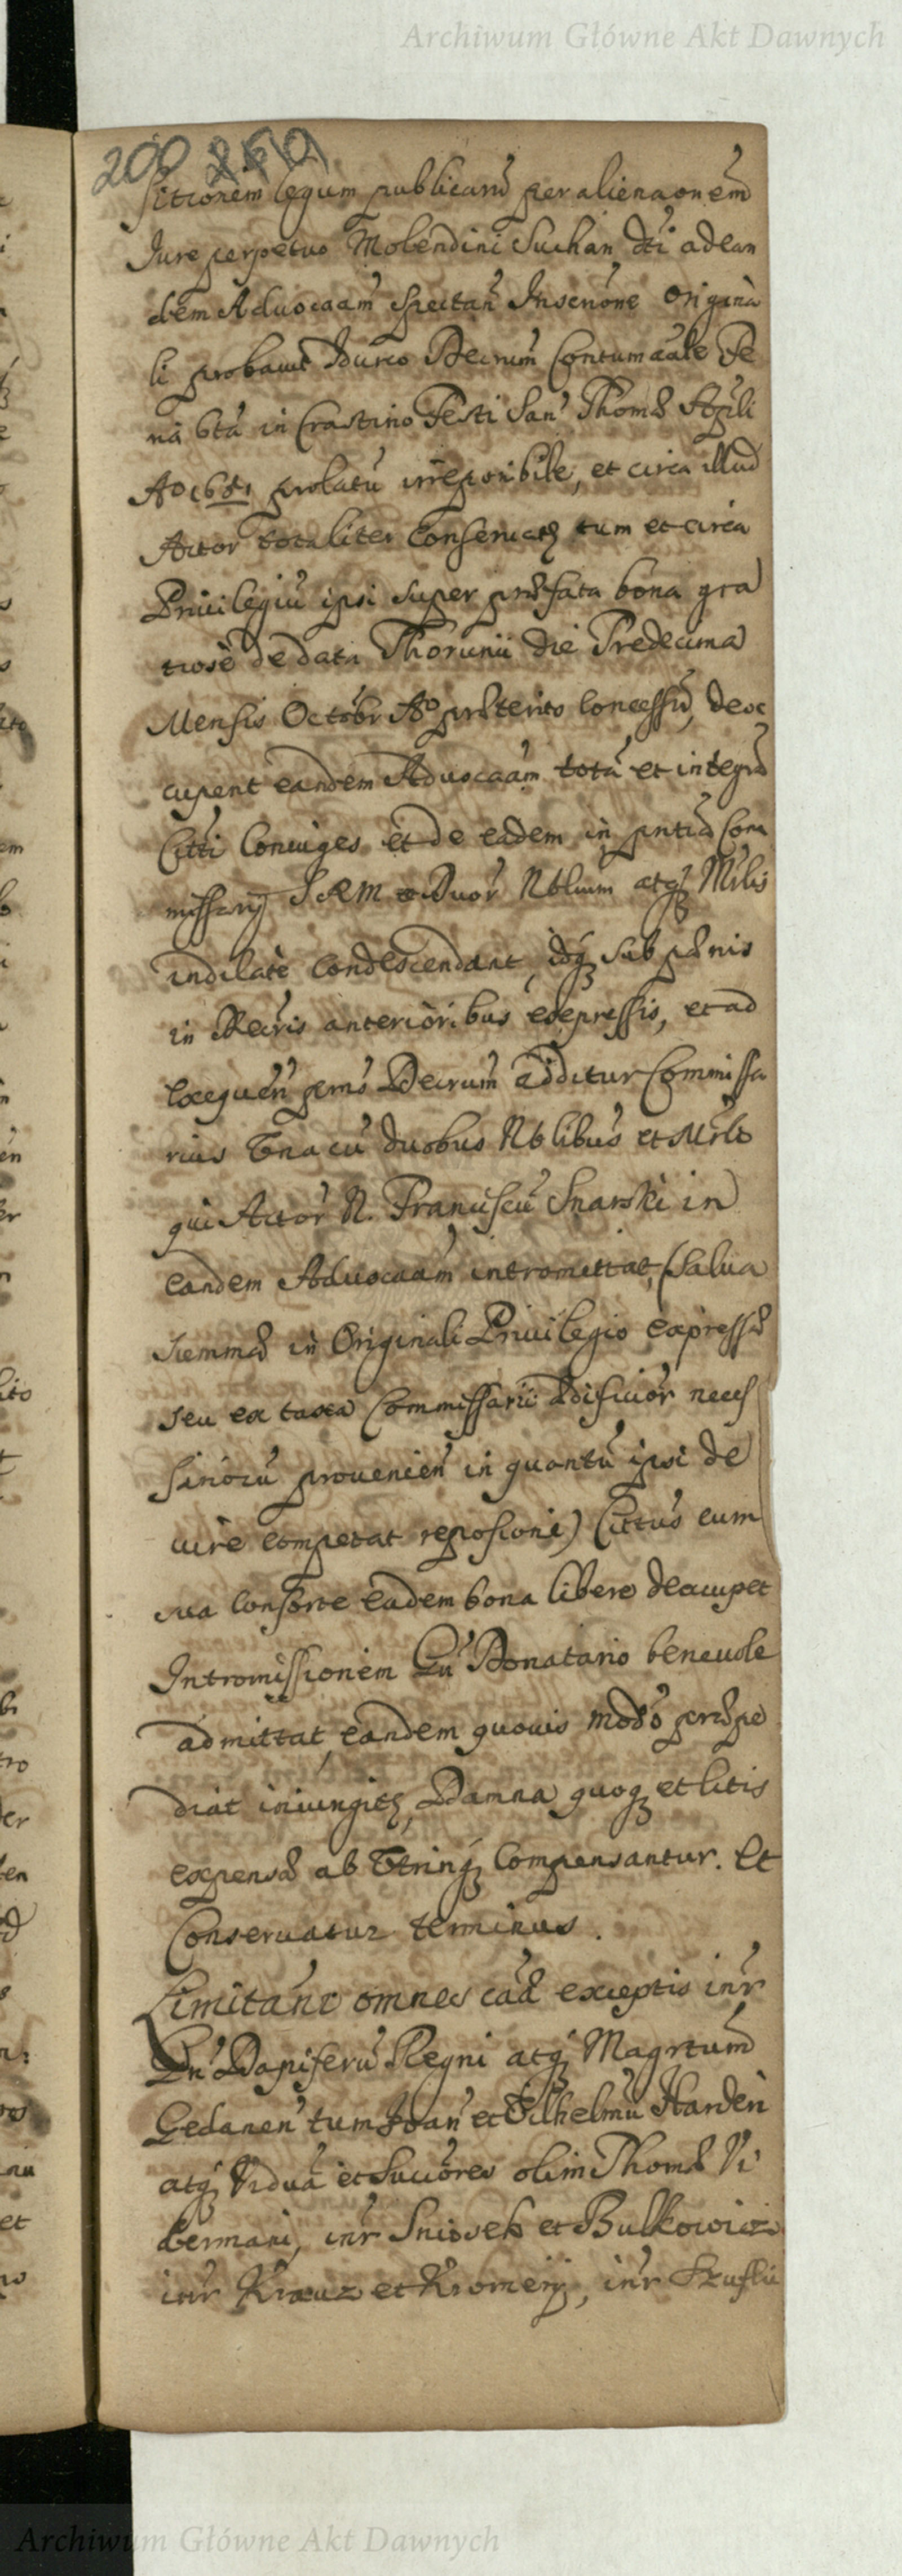 Archiwum Główne Akt Dawnych
200 260
sitionem legum publicarū per alienaonem
Jure perpetuo Molendini Suchan dti ad ean
dem Aduocaam spectan Inscrione origina
li probauit Idurco Decrum Contumaale Fe
ria 6ta in Crastino Festi San Thomæ Apli
Ao 1681 prolatū irreponibile, et circa illud
Actor totaliter conseruatꝫ tum et circa
Priuilegiū ipsi super præfata bona gra
tiose de data Thorunii die Tredecima
Mensis Octobr Ao præterito concessū, deoc
cupent eandem Aduocaam totā et integrā
Citti Coniuges et de eadem in pntia Com
missarij S R M ac Duor Nblium atqꝫ Milis
indilate condescendant, idqꝫ sub pænis
in Decris anterioribus expressis, et ad
exequen pens Decrum additur Commissa
rius Una cū duobus Nblibus et Milb
qui Actor N. Franciscū Snarski in
eandem Aduocaam intromittat, (salua
summa in Originali Priuilegio expressa
seu ex taxa Commissarii ædificior neces
sariorū prouenien in quantū ipsi de
iure competat repositione) Cittus cum
sua consorte eadem bona libere deoccupet
Intromissionem Gn Donatario beneuole
admittat, eandem quouis modo præpe
diat iniungitꝫ, Damna quoqꝫ et litis
expensæ ab Utrinqꝫ compensantur. Et
Conseruatur terminus.
Limitant omnes cāæ exceptis intr
Gn Dapiferū Regni atqꝫ Magrtum
Gedanen tum Joan et Wilhelmū Harden
atqꝫ Viduā et Succores olim Thomæ Vi
dermani, intr et Bulkowicz
intr Krauz et Kromerÿ, intr Szuflii
Archiwum Główne Akt Dawnych